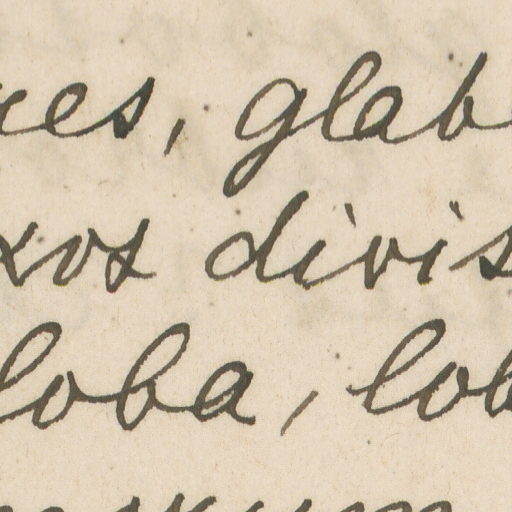 ces, glab
xos divis
loba, lob